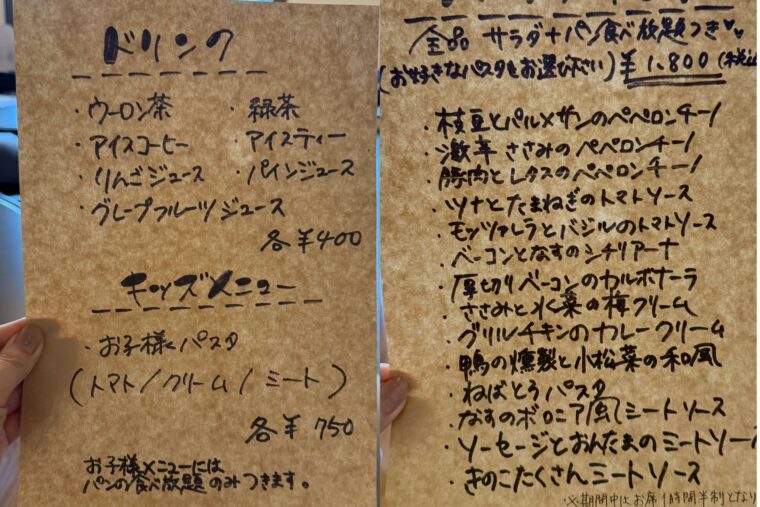 ドリンク
・ウーロン茶 ・緑茶
・アイスコーヒー ・アイスティー
・りんごジュース ・パインジュース
・グレープフルーツジュース
各¥400
キッズメニュー
・お子様パスタ
(トマト/クリーム/ミート)
各¥750
お子様メニューには
パンの食べ放題のみつきます。
全品 サラダ+パン食べ放題つき♥♥
(お好きなパスタをお選び下さい) ¥1,800 (税込
・枝豆とパルメザンのペペロンチーノ
・激辛 ささみのペペロンチーノ
・豚肉とレタスのペペロンチーノ
・ツナとたまねぎのトマトソース
・モッツァレラとバジルのトマトソース
・ベーコンとなすのシチリアーナ
・厚切りベーコンのカルボナーラ
・ささみと水菜の梅クリーム
・グリルチキンのカレークリーム
・鴨の燻製と小松菜の和風
・ねばとろパスタ
・なすのボロニア風ミートソース
・ソーセージとおんたまのミートソー
・きのこたくさんミートソース
※期間中はお席1時間半制となり